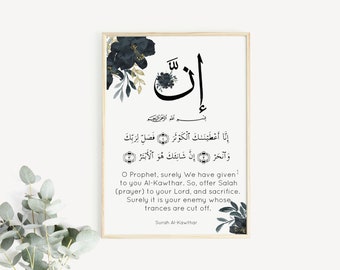 إِنَّ
بِسْمِ اللَّهِ الرَّحْمَٰنِ الرَّحِيمِ
إِنَّا أَعْطَيْنَـٰكَ ٱلْكَوْثَرَ ۝١ فَصَلِّ لِرَبِّكَ
وَٱنْحَرْ ۝٢ إِنَّ شَانِئَكَ هُوَ ٱلْأَبْتَرُ ۝٣
O Prophet, surely We have given
to you Al-Kawthar. So, offer Salah
(prayer) to your Lord, and sacrifice.
Surely it is your enemy whose
trances are cut off.
Surah Al-Kawthar